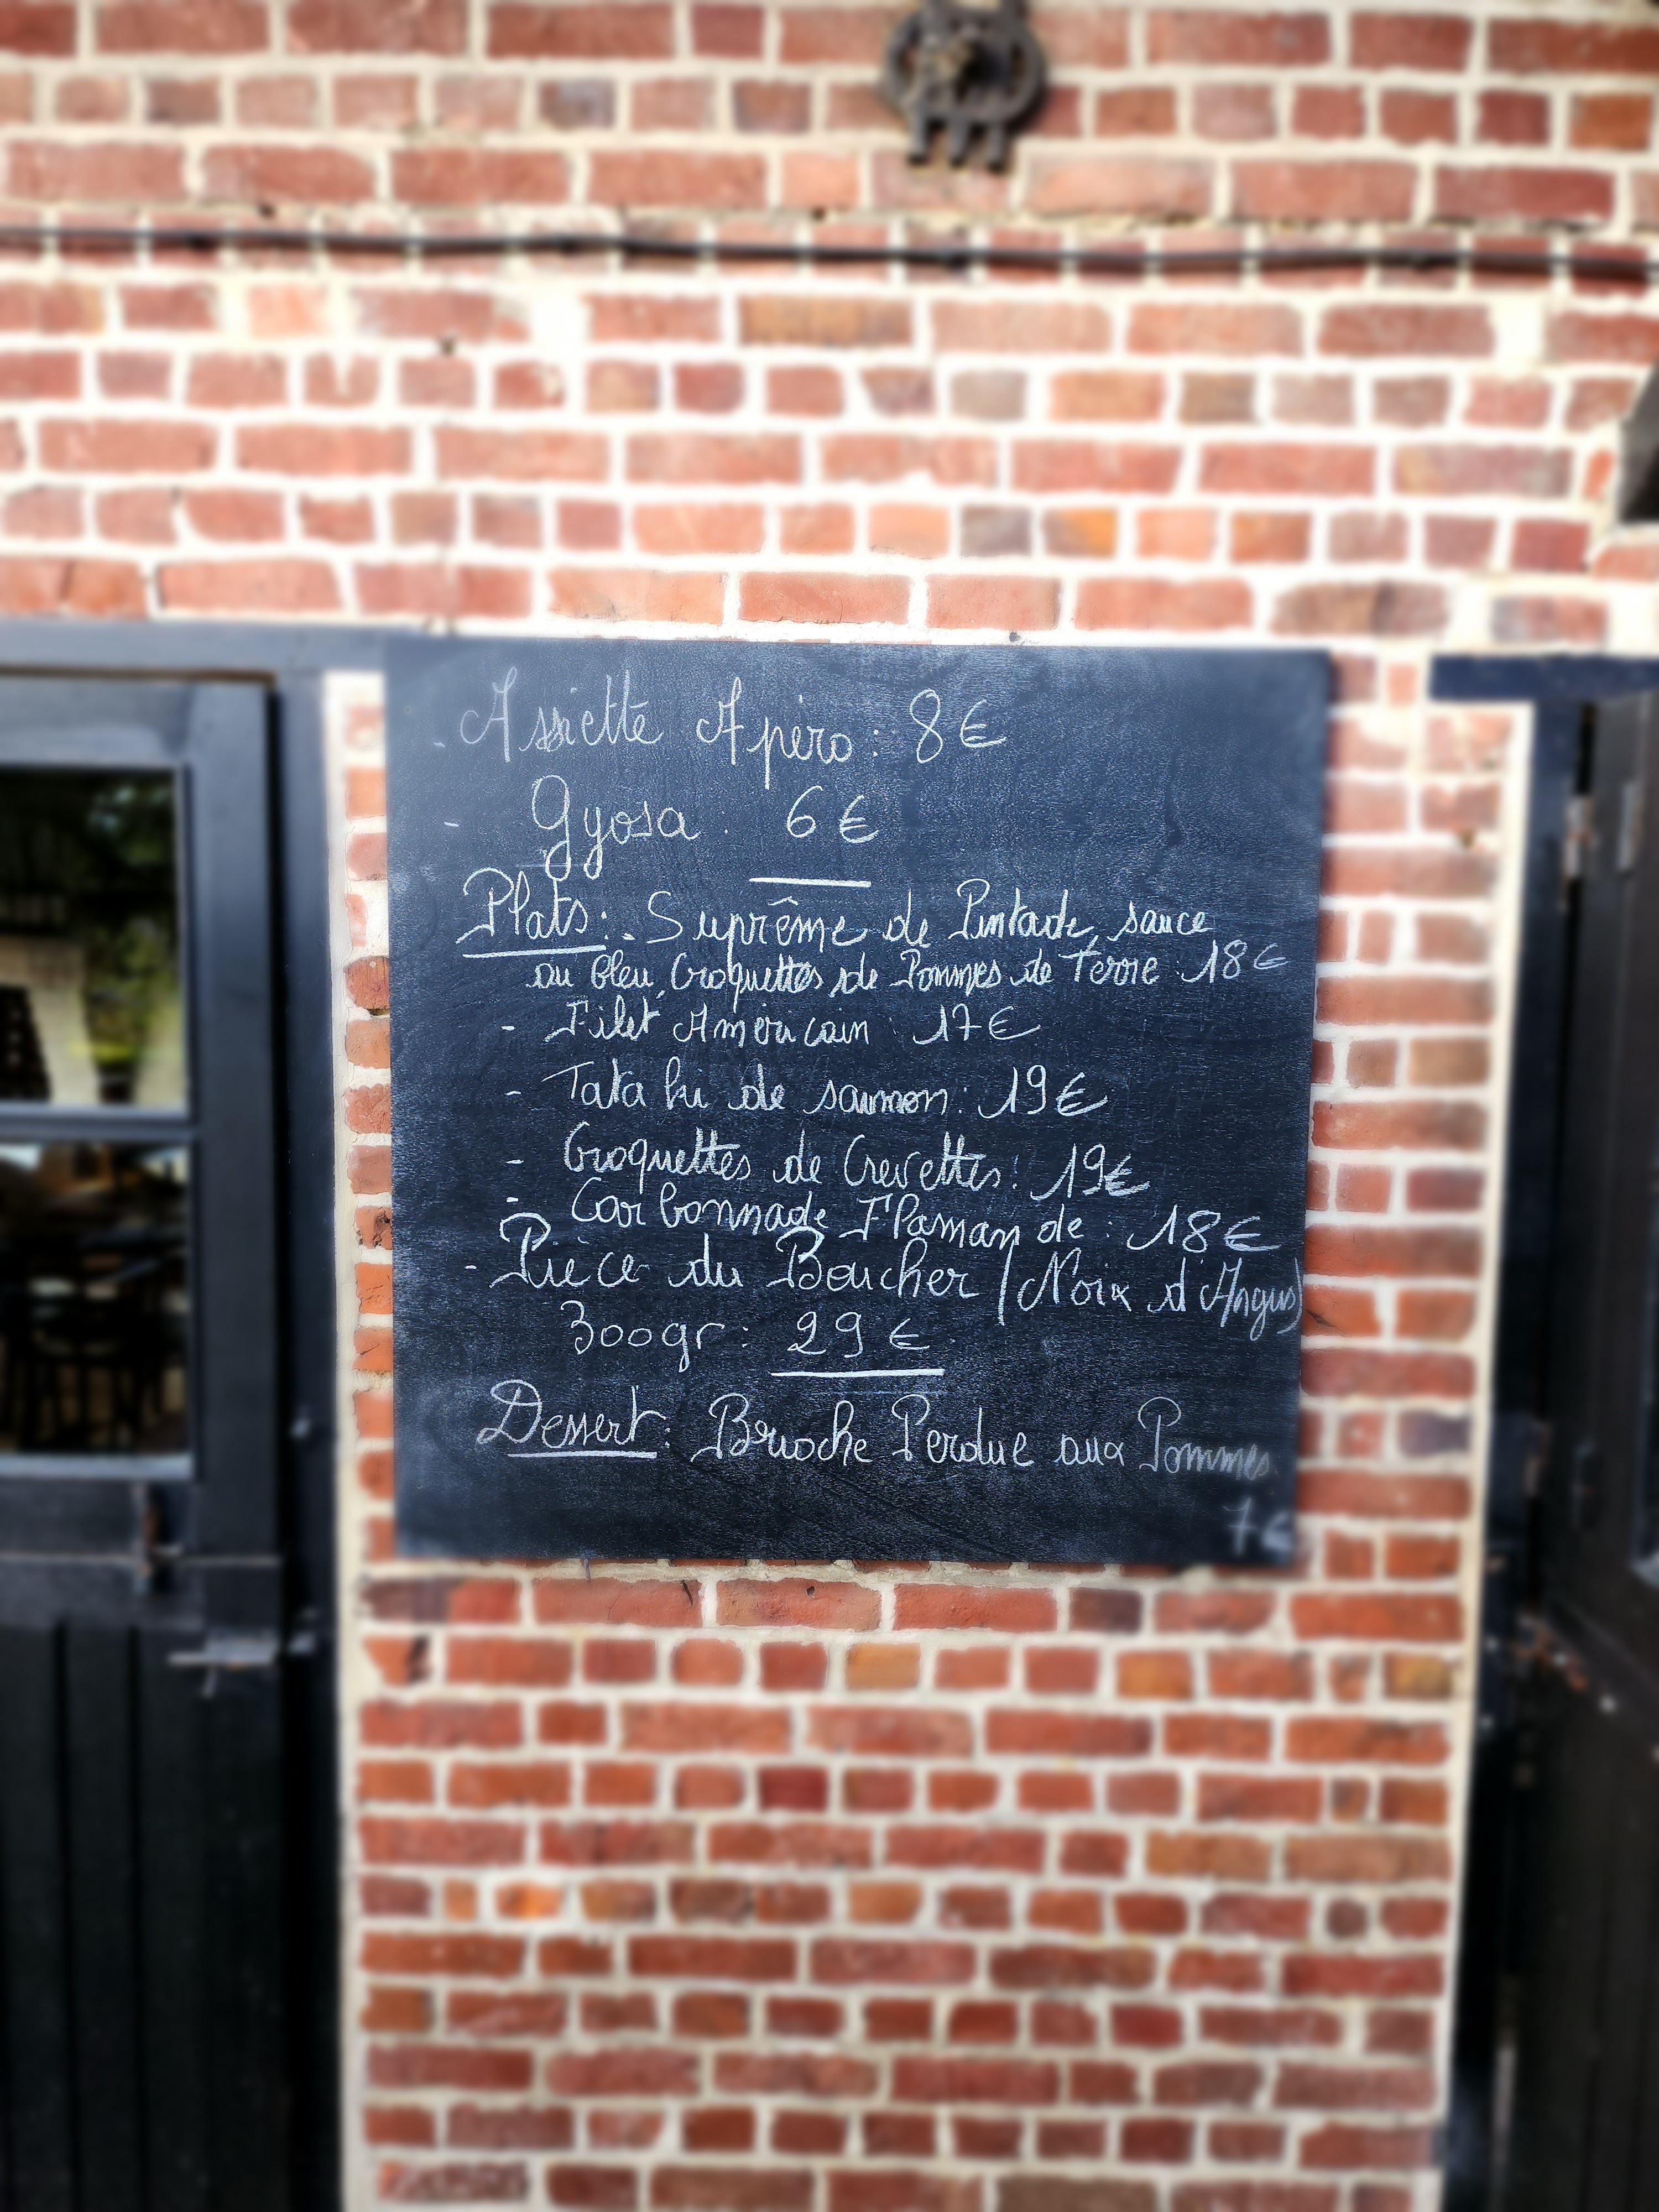 - Assiette Apéro : 8€
- Gyosa : 6€
Plats : - Suprême de Pintade, sauce
au bleu, Croquettes de Pommes de Terre : 18€
- Filet Américain : 17€
- Tataki de saumon : 19€
- Croquettes de Crevettes : 19€
- Carbonnade Flamande : 18€
- Pièce du Boucher (Noix d'Angus)
300gr : 29€
Dessert : Brioche Perdue aux Pommes
7€